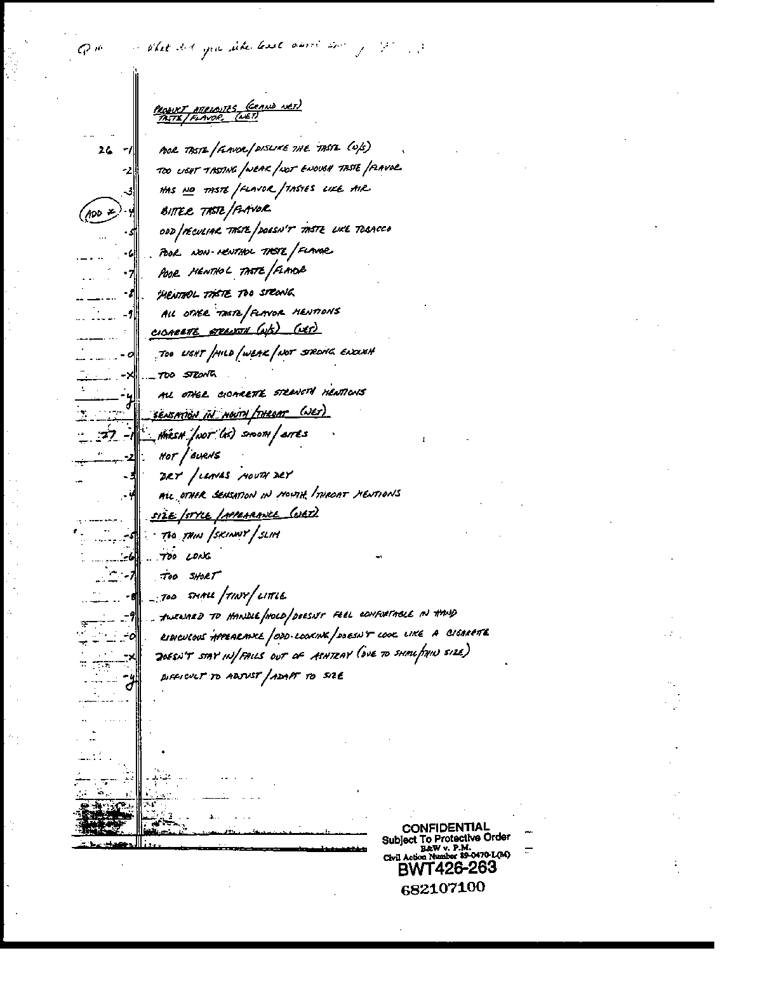 What did you like least about
PRODUCT ATTRIBUTES (GRAND NET)
TASTE/FLAVOR (NET)
26 -1 POOR TASTE/FLAVOR/DISLIKE THE TASTE (N/S)
-2 TOO LIGHT TASTING/WEAK/NOT ENOUGH TASTE/FLAVOR
-3 HAS NO TASTE/FLAVOR/TASTES LIKE AIR
ADD X -4 BITTER TASTE/FLAVOR
-5 ODD/PECULIAR TASTE/DOESN'T TASTE LIKE TOBACCO
-6 POOR NON-MENTHOL TASTE/FLAVOR
-7 POOR MENTHOL TASTE/FLAVOR
-8 MENTHOL TASTE TOO STRONG
-9 ALL OTHER TASTE/FLAVOR MENTIONS
CIGARETTE STRENGTH (N/S) (NET)
-0 TOO LIGHT/MILD/WEAK/NOT STRONG ENOUGH
-X TOO STRONG
-y ALL OTHER CIGARETTE STRENGTH MENTIONS
SENSATION IN MOUTH/THROAT (NET)
27 -1 HARSH/NOT (AS) SMOOTH/BITES
-2 HOT/BURNS
-3 DRY/LEAVES MOUTH DRY
-4 ALL OTHER SENSATION IN MOUTH/THROAT MENTIONS
SIZE/STYLE/APPEARANCE (NET)
-5 TOO THIN/SKINNY/SLIM
-6 TOO LONG
-7 TOO SHORT
-8 TOO SMALL/TINY/LITTLE
-9 AWKWARD TO HANDLE/HOLD/DOESN'T FEEL COMFORTABLE IN HAND
-0 RIDICULOUS APPEARANCE/ODD-LOOKING/DOESN'T LOOK LIKE A CIGARETTE
-X DOESN'T STAY IN/FALLS OUT OF ASHTRAY (DUE TO SMALL/THIN SIZE)
-y DIFFICULT TO ADJUST/ADAPT TO SIZE
CONFIDENTIAL
Subject To Protective Order
B&W v. P.M.
Civil Action Number 89-0470-L(M)
BWT426-263
682107100